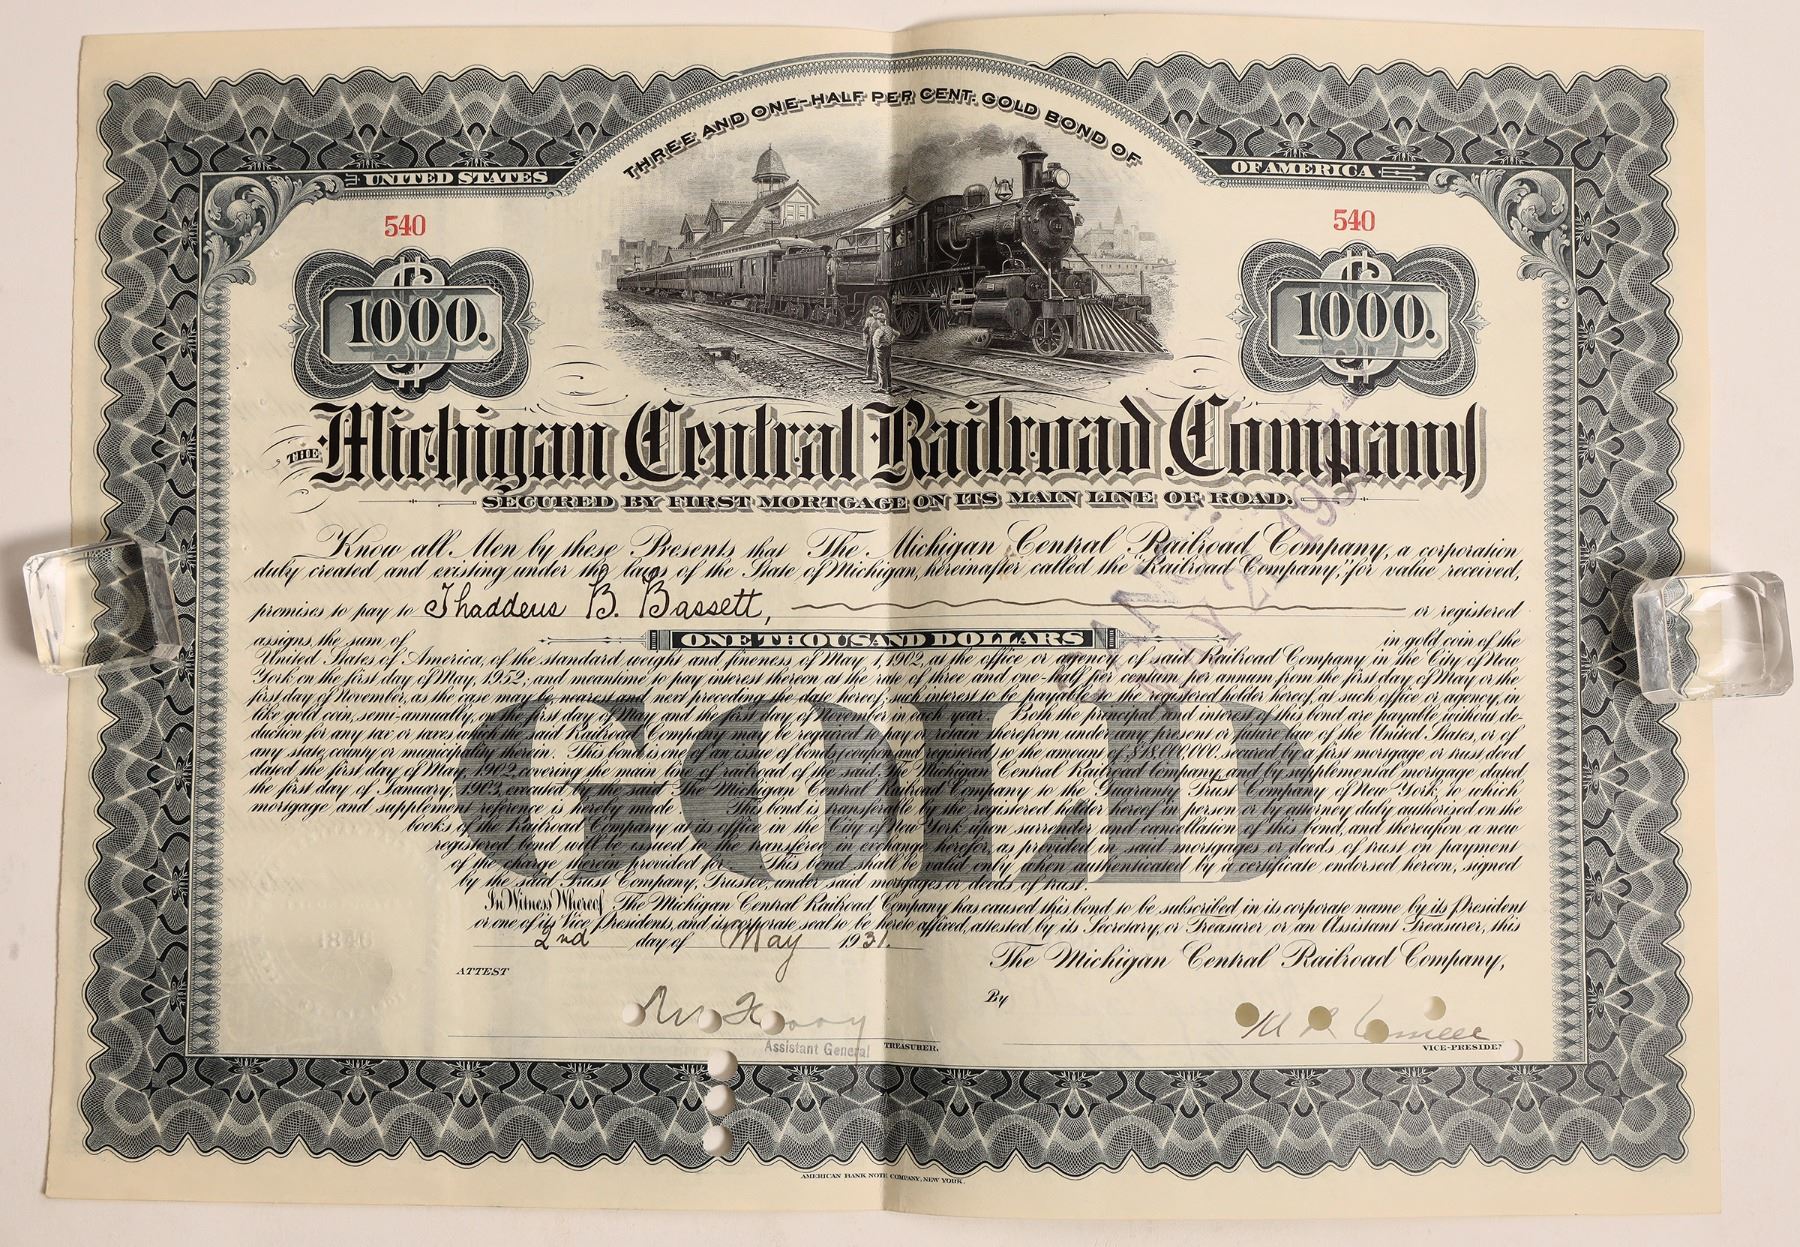 THREE AND ONE-HALF PER CENT. GOLD BOND OF
UNITED STATES
OF AMERICA
540
540
1000.
1000.
THE Michigan Central Railroad Company
SECURED BY FIRST MORTGAGE ON ITS MAIN LINE OF ROAD.
Know all Men by these Presents that The Michigan Central Railroad Company, a corporation
duly created and existing under the laws of the State of Michigan, hereinafter called the "Railroad Company," for value received,
promises to pay to Thaddeus B. Bassett, or registered
assigns, the sum of ONE THOUSAND DOLLARS in gold coin of the
United States of America, of the standard weight and fineness, of May 1, 1902, at the office or agency of said Railroad Company in the City of New
York on the first day of May, 1952; and meantime to pay interest thereon at the rate of three and one-half per centum per annum from the first day of May or the
first day of November, as the case may be, nearest and next preceding the date hereof, such interest to be payable to the registered holder hereof, at such office or agency, in
like gold coin, semi-annually, on the first day of May and the first day of November in each year. Both the principal and interest of this bond are payable without de-
duction for any tax or taxes which the said Railroad Company may be required to pay or retain therefrom under any present or future law of the United States, or of
any state, county or municipality therein. This bond is one of an issue of bonds, coupon and registered, to the amount of $18,000,000, secured by a first mortgage or trust deed
dated the first day of May, 1902, covering the main line of railroad of the said, The Michigan Central Railroad Company, and by supplemental mortgage dated
the first day of January, 1903, executed by the said The Michigan Central Railroad Company to the Guaranty Trust Company of New York, to which
mortgage and supplement reference is hereby made. This bond is transferable by the registered holder hereof in person or by attorney duly authorised on the
books of the Railroad Company at its office in the City of New York upon surrender and cancellation of this bond, and thereupon a new
registered bond will be issued to the transferee in exchange herefor, as provided in said mortgages or deeds of trust on payment
of the charge therein provided for. This bond shall be valid only when authenticated by a certificate endorsed hereon, signed
by the said Trust Company, Trustee, under said mortgages or deeds of trust.
GOLD
In Witness Whereof, The Michigan Central Railroad Company has caused this bond to be subscribed in its corporate name by its President
or one of its Vice Presidents, and its corporate seal to be hereto affixed, attested by its Secretary, or Treasurer or an Assistant Treasurer, this
2nd day of May 1931.
The Michigan Central Railroad Company,
ATTEST
By
Assistant General TREASURER.
VICE-PRESIDE
AMERICAN BANK NOTE COMPANY, NEW YORK.